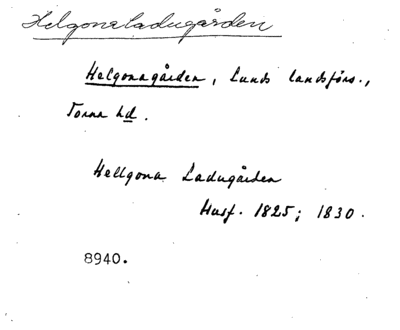 Helgonaladugården
Helgonagården, Lunds landsförs.,
Torna hd.
Hellgona Ladugården
Husf. 1825; 1830.
8940.